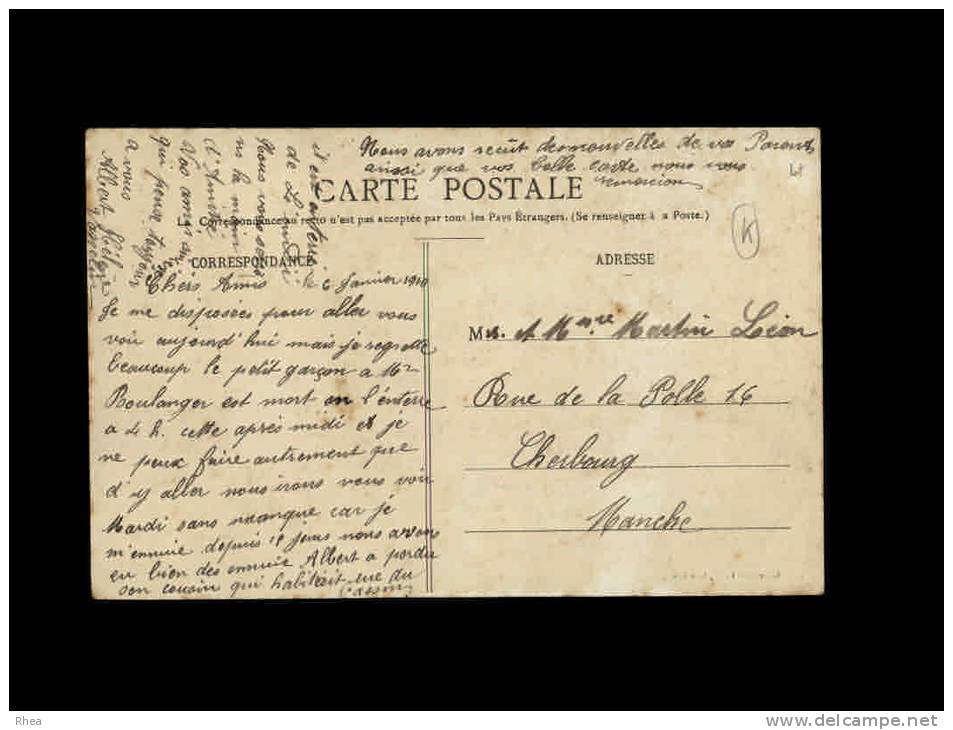 Nous avons recût des nouvelles de vos Parents
aussi que vos belle carte nous vous
remercion
CARTE POSTALE
La Correspondance au recto n'est pas acceptée par tous les Pays Étrangers. (Se renseigner à la Poste.)
K
CORRESPONDANCE
ADRESSE
Chers Amis le 6 Janvier 1910
Je me disposées pour aller vous
voir aujourd'hui mais je regrette
beaucoup le petit garçon a Mr
Boulanger est mort on l'enterre
a 4 h. cette après midi et je
ne peux faire autrement que
d'y aller nous irons vous voir
Mardi sans manque car je
m'ennuie depuis jours nous avons
eu bien des ennuie Albert a perdu
son cousin qui habitait rue du
il est enterré
de
Nous vous
la main
d'Amitié
Vos amis
qui pense toujour
a vous
Albert
Mr. et Mme Martin Léon
Rue de la Polle 16
Cherbourg
Manche
Rhea
www.delcampe.net